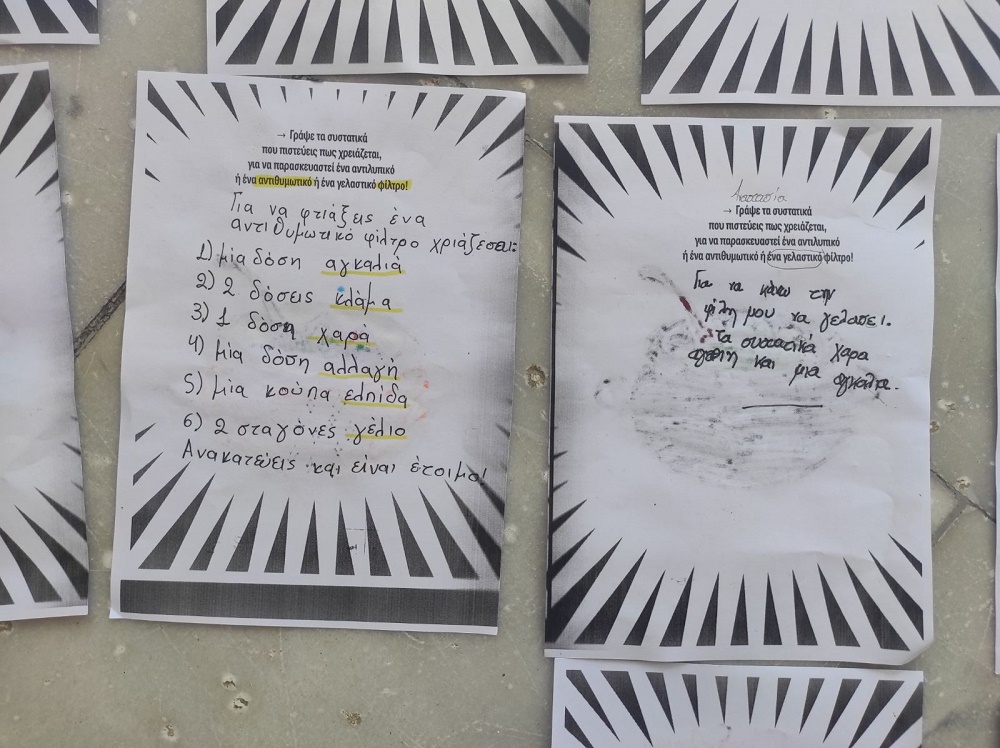 → Γράψε τα συστατικά
που πιστεύεις πως χρειάζεται,
για να παρασκευαστεί ένα αντιλυπικό
ή ένα αντιθυμωτικό ή ένα γελαστικό φίλτρο!
Για να φτιάξεις ένα
αντιθυμωτικό φίλτρο χριάζεσει:
1) μία δόση αγκαλιά
2) 2 δόσεις κλάμα
3) 1 δόση χαρά
4) μία δόση αλλαγή
5) μία κούπα ελπίδα
6) 2 σταγόνες γέλιο
Ανακατεύεις και είναι έτοιμο!
Αναστασία
→ Γράψε τα συστατικά
που πιστεύεις πως χρειάζεται,
για να παρασκευαστεί ένα αντιλυπικό
ή ένα αντιθυμωτικό ή ένα γελαστικό φίλτρο!
Για να κάνω την
φίλη μου να γελάσει.
τα συστατικά χαρα
και μια αγκαλια.